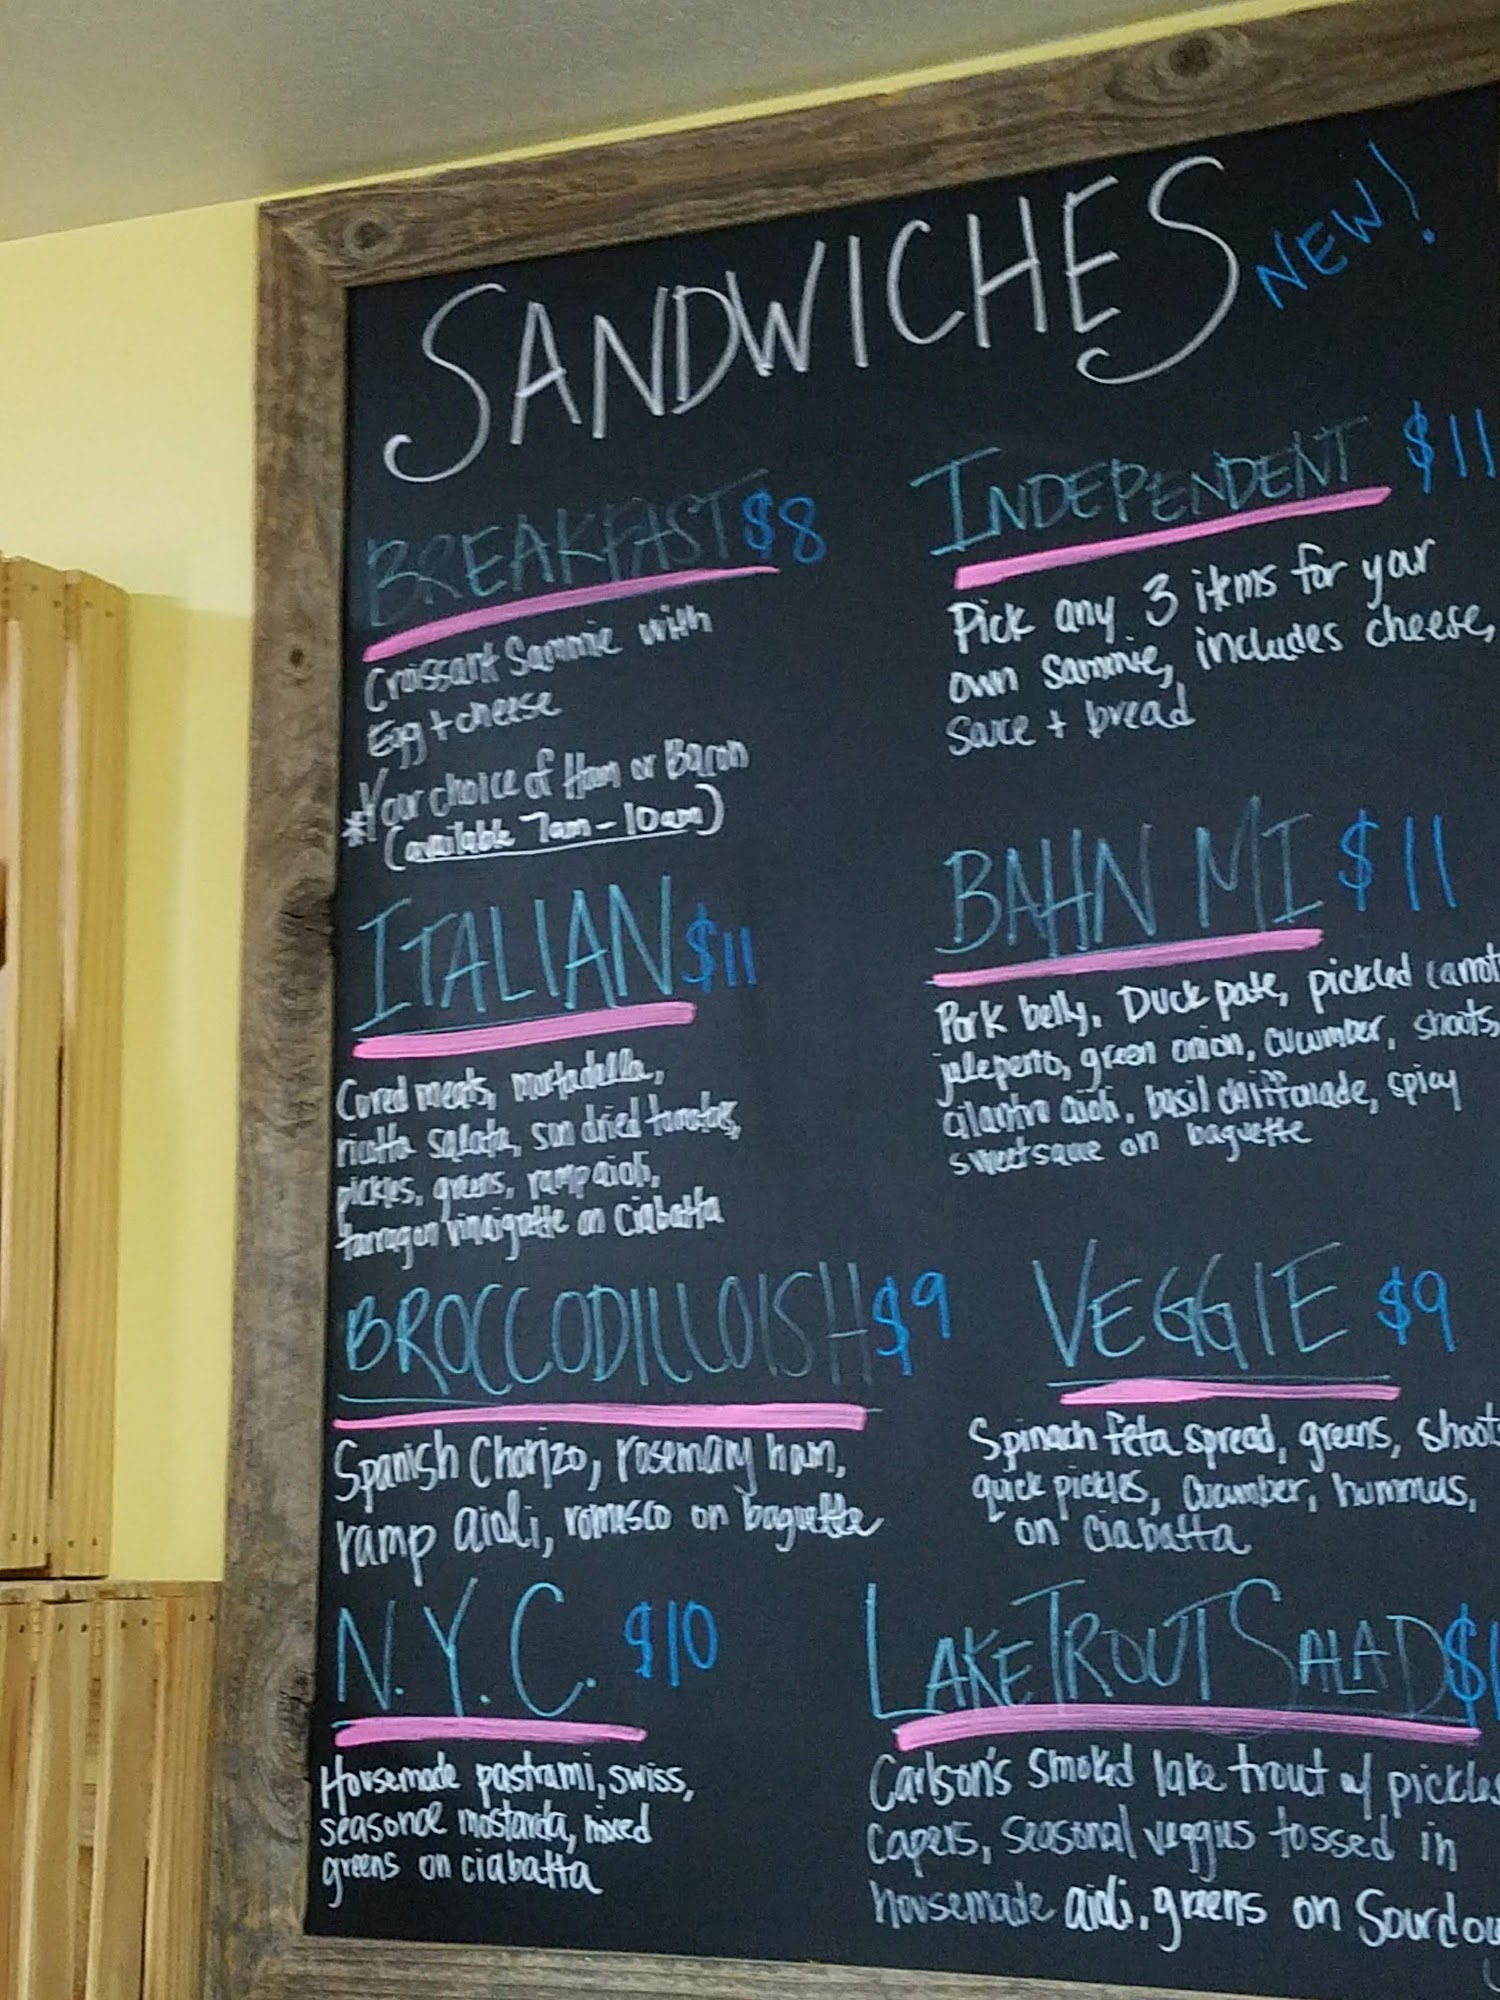 SANDWICHES
NEW!
BREAKFAST $8
Croissant Sammie with
Egg + cheese
*Your choice of Ham or Bacon
(available 7am - 10am)
ITALIAN $11
Cured meats, mortadella,
ricotta salata, sun dried tomatoes,
pickles, greens, ramp aioli,
tarragon vinaigrette on Ciabatta
BROCCODILLOISH $9
Spanish Chorizo, rosemary ham,
ramp aioli, romesco on baguette
N.Y.C. $10
Housemade pastrami, swiss,
seasonal mostarda, mixed
greens on ciabatta
INDEPENDENT $11
Pick any 3 items for your
own sammie, includes cheese,
Sauce + bread
BAHN MI $11
Pork belly, Duck pate, pickled carrots
jalepeno, green onion, cucumber, shoots,
cilantro aioli, basil chiffonade, spicy
sweet sauce on baguette
VEGGIE $9
Spinach feta spread, greens, shoots
quick pickles, cucumber, hummus,
on Ciabatta
LAKE TROUT SALAD $1
Carlson's smoked lake trout w/ pickles
capers, seasonal veggies tossed in
housemade aioli, greens on Sourdou